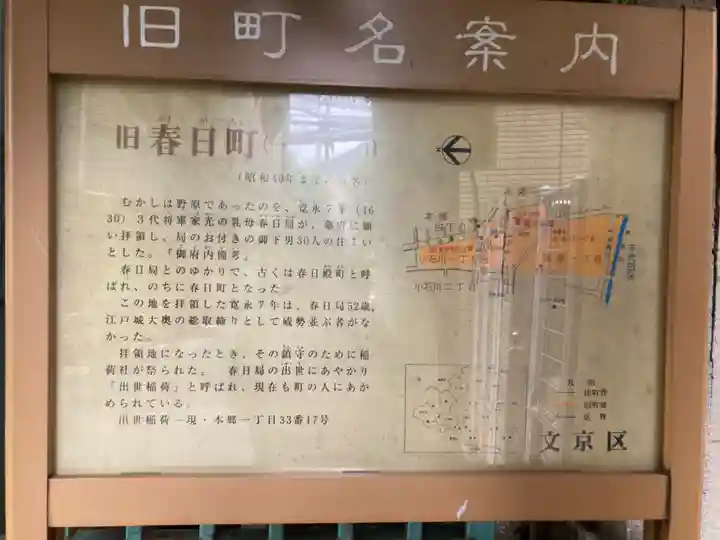 旧町名案内
旧春日町
(昭和40年まで
むかしは野原であったのを、寛永7年(16
30)3代将軍家光の乳母春日局が、幕府に願
い拝領し、局のお付きの御下男30人の住まい
とした。「御府内備考」
春日局とのゆかりで、古くは春日殿町と呼
ばれ、のちに春日町となった
この地を拝領した寛永7年は、春日局52歳、
江戸城大奥の総取締りとして威勢並ぶ者がな
かった。
拝領地になったとき、その鎮守のために稲
荷社が祭られた。 春日局の出世にあやかり
「出世稲荷」と呼ばれ、現在も町の人にあが
められている。
出世稲荷—現・本郷一丁目33番17号
小石川一丁目
小石川二丁目
文京区